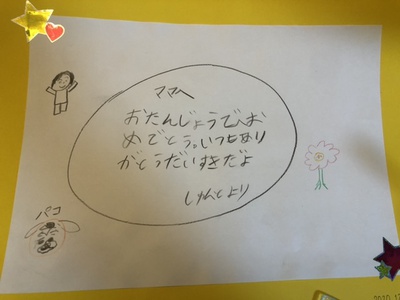 ママへ
おたんじょうびお
めでとう。いつもあり
がとうだいすきだよ
しゅんとより
パコ